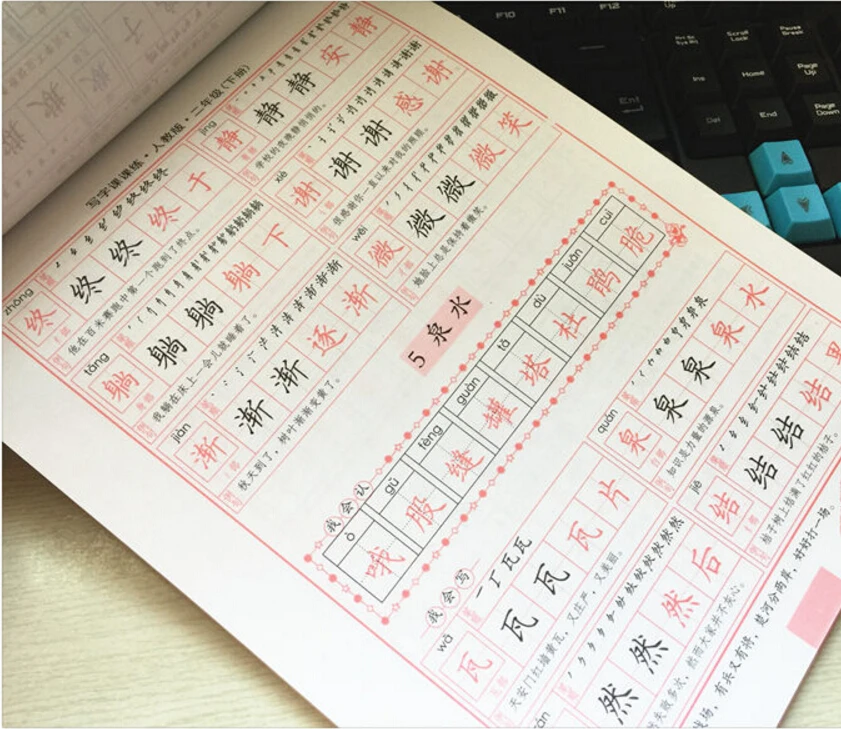 写字课课练·人教版·二年级(下册)
zhōng
终 终 终 终 于
他在百米赛跑中第一个跑到了终点。
jìng
静 静 静 安 静
学校的夜晚静悄悄的。
tǎng
躺 躺 躺 躺 下
我躺在床上一会儿就睡着了。
xiè
谢 谢 谢 感 谢
很感谢你一直以来对我的照顾。
jiàn
渐 渐 渐 逐 渐
秋天到了,树叶渐渐变黄了。
wēi
微 微 微 微 笑
她脸上总是保持着微笑。
5 泉水
我会认
ò gǔ fèng guàn tǎ dù juān cuì
哦 股 缝 罐 塔 杜 鹃 脆
我会写
wǎ
瓦 瓦 瓦 瓦 片
天安门红墙黄瓦,又庄严,又美丽。
quán
泉 泉 泉 泉 水
知识是力量的源泉。
然 然 然 后
失败多次,然而大家并不灰心。
jiē
结 结 结 结 果
柿子树上结满了红红的柿子。
战场,有兵又有将,楚河分两岸,好好打一场。
F10 F11 F12 Up
Scroll Lock
Pause Break
Ins Home Page Up
Del End Page Down
Ent